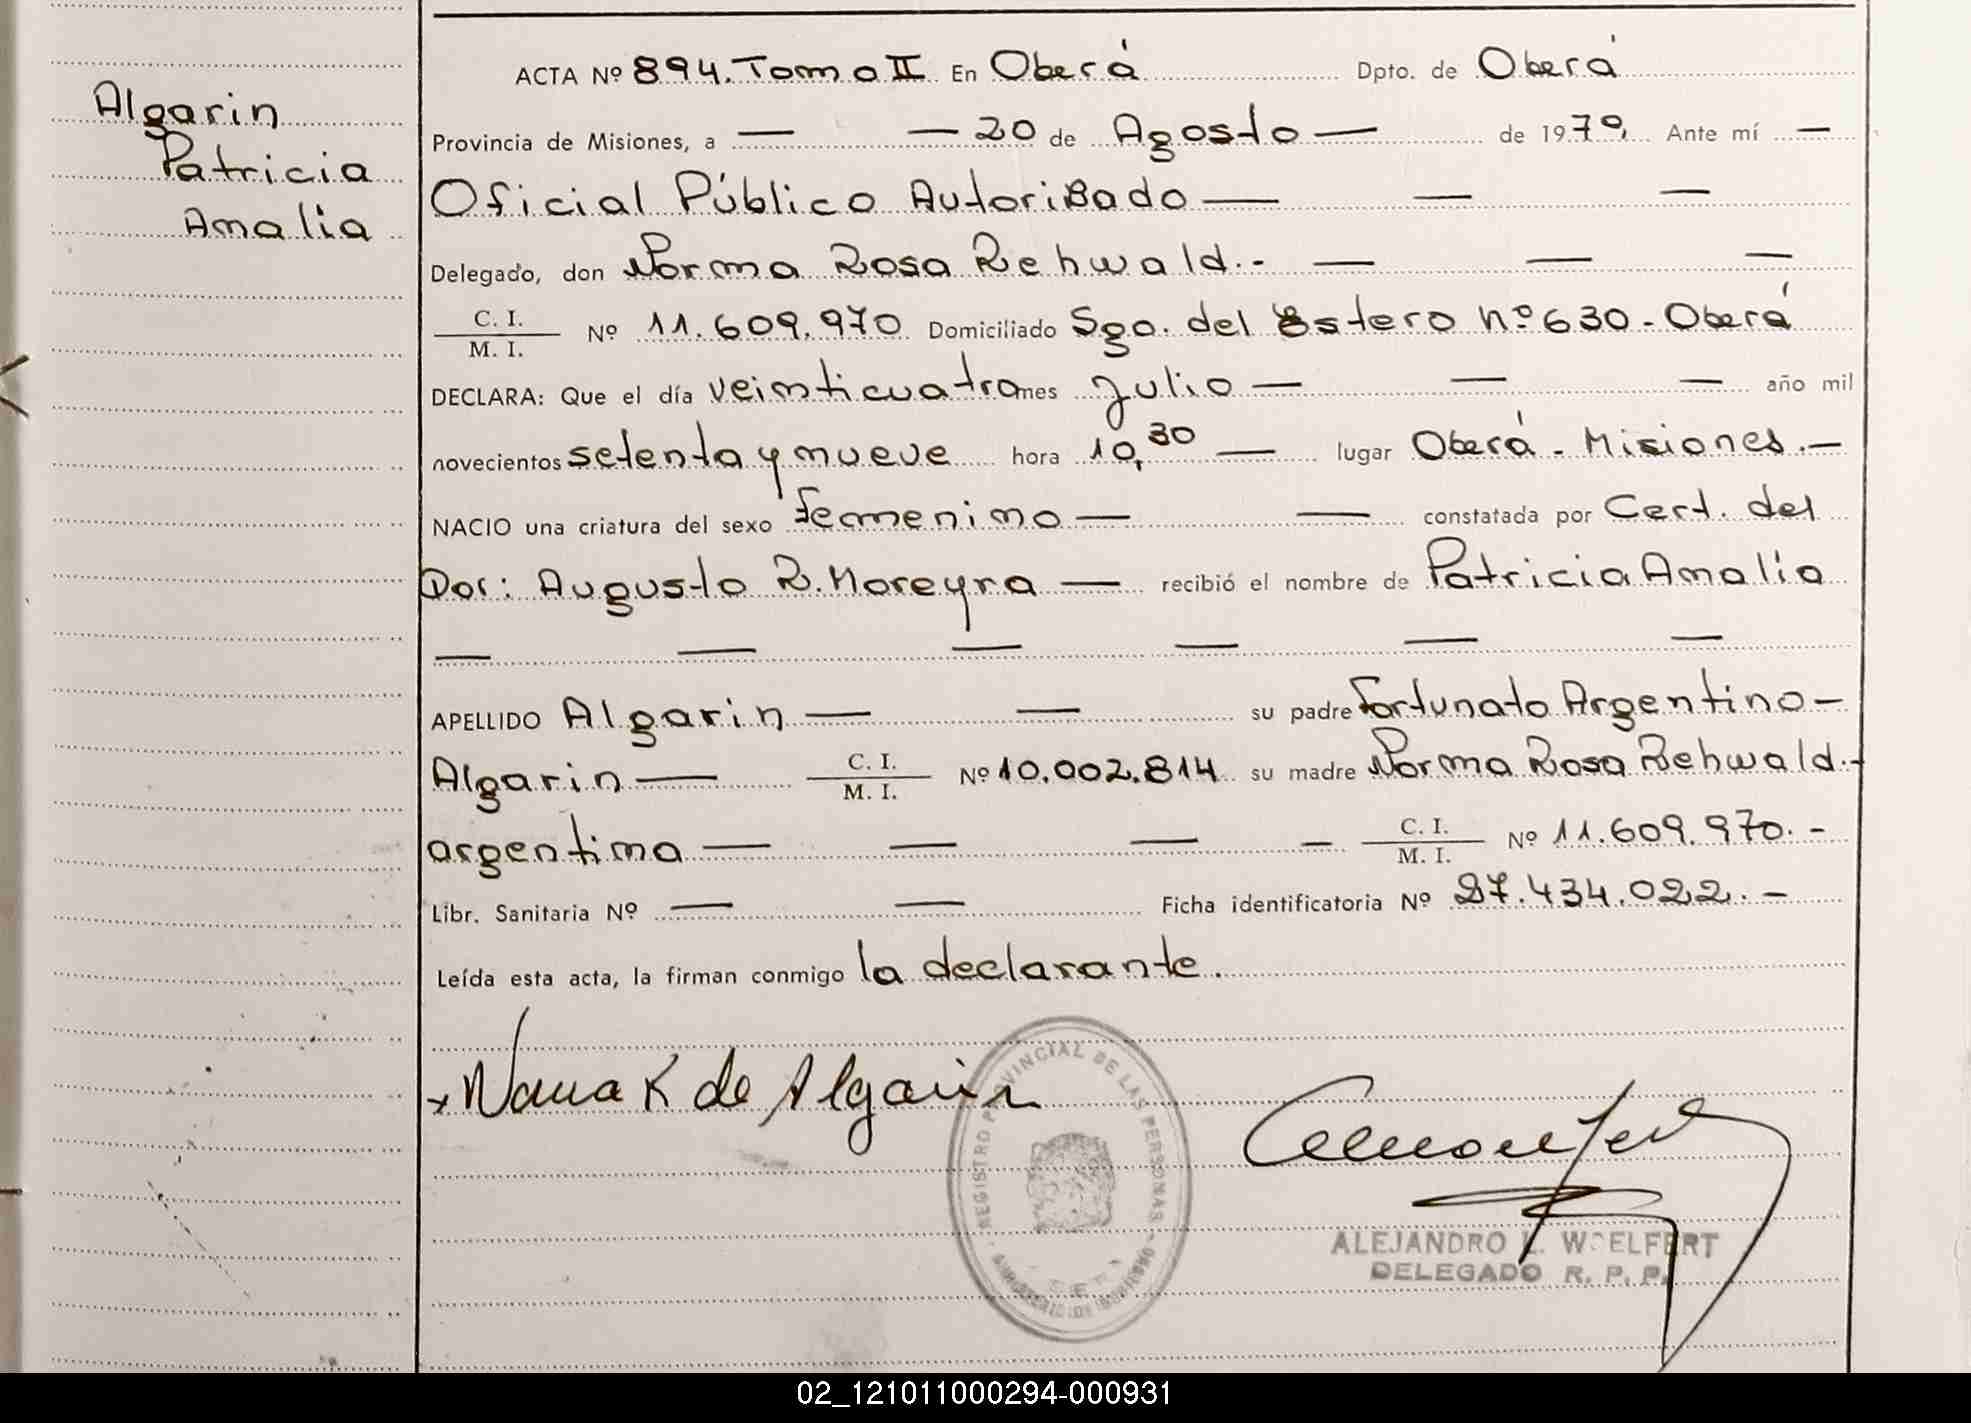 Algarin
Patricia
Amalia
ACTA Nº 894. Tomo II En Oberá Dpto. de Oberá
Provincia de Misiones, a — — 20 de Agosto — de 1979 Ante mí —
Oficial Público Autorizado — — —
Delegado, don Norma Rosa Rehwald.- — — —
C. I.
M. I. Nº 11.609.970 Domiciliado Sgo. del Estero nº 630 - Oberá
DECLARA: Que el día veinticuatro mes julio — — — año mil
novecientos setenta y nueve hora 10,30 — lugar Oberá - Misiones.—
NACIO una criatura del sexo femenino — — constatada por Cert. del
Dor: Augusto R. Moreyra — recibió el nombre de Patricia Amalia
— — — — — —
APELLIDO Algarin — — su padre Fortunato Argentino —
Algarin — C. I.
M. I. Nº 10.002.814 su madre Norma Rosa Rehwald.-
argentina — — — — C. I.
M. I. Nº 11.609.970.-
Libr. Sanitaria Nº — — Ficha identificatoria Nº 27.434.022.-
Leída esta acta, la firman conmigo la declarante.
Norma R de Algarin
REGISTRO PROVINCIAL DE LAS PERSONAS
ALEJANDRO L. WOELFERT
DELEGADO R. P. P.
02_121011000294-000931